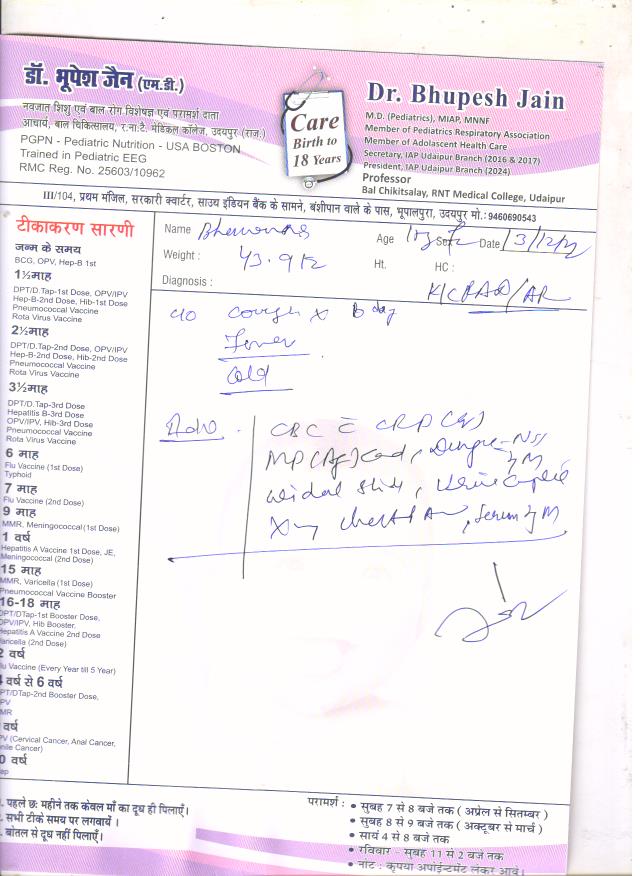 डॉ. भूपेश जैन (एम.डी.)
नवजात शिशु एवं बाल रोग विशेषज्ञ एवं परामर्श दाता
आचार्य, बाल चिकित्सालय, र.ना.टै. मेडिकल कॉलेज, उदयपुर (राज.)
PGPN - Pediatric Nutrition - USA BOSTON
Trained in Pediatric EEG
RMC Reg. No. 25603/10962
Care
Birth to
18 Years
Dr. Bhupesh Jain
M.D. (Pediatrics), MIAP, MNNF
Member of Pediatrics Respiratory Association
Member of Adolescent Health Care
Secretary, IAP Udaipur Branch (2016 & 2017)
President, IAP Udaipur Branch (2024)
Professor
Bal Chikitsalay, RNT Medical College, Udaipur
III/104, प्रथम मंजिल, सरकारी क्वार्टर, साउथ इडियन बैंक के सामने, बंशीपान वाले के पास, भूपालपुरा, उदयपुर मो.: 9460690543
टीकाकरण सारणी
जन्म के समय
BCG, OPV, Hep-B 1st
1½माह
DPT/D.Tap-1st Dose, OPV/IPV
Hep-B-2nd Dose, Hib-1st Dose
Pneumococcal Vaccine
Rota Virus Vaccine
2½माह
DPT/D.Tap-2nd Dose, OPV/IPV
Hep-B-2nd Dose, Hib-2nd Dose
Pneumococcal Vaccine
Rota Virus Vaccine
3½माह
DPT/D.Tap-3rd Dose
Hepatitis B-3rd Dose
OPV/IPV, Hib-3rd Dose
Pneumococcal Vaccine
Rota Virus Vaccine
6 माह
Flu Vaccine (1st Dose)
Typhoid
7 माह
Flu Vaccine (2nd Dose)
9 माह
MMR, Meningococcal (1st Dose)
1 वर्ष
Hepatitis A Vaccine 1st Dose, JE,
Meningococcal (2nd Dose)
15 माह
MMR, Varicella (1st Dose)
Pneumococcal Vaccine Booster
16-18 माह
DPT/DTap-1st Booster Dose,
OPV/IPV, Hib Booster,
Hepatitis A Vaccine 2nd Dose
Varicella (2nd Dose)
2 वर्ष
Flu Vaccine (Every Year till 5 Year)
वर्ष से 6 वर्ष
DPT/DTap-2nd Booster Dose,
वर्ष
(Cervical Cancer, Anal Cancer,
Cancer)
वर्ष
Name
Age Sex Date
Weight : 43.9
Ht. HC :
Diagnosis :
c/o cough x day
Fever
Cold
Adv.
CBC CRP
MP (Ag) Card, Dengue - NS1
Widal
X-ray chest PA, Serum
. पहले छ: महीने तक केवल माँ का दूध ही पिलाएँ।
. सभी टीके समय पर लगवायें ।
. बोतल से दूध नहीं पिलाएँ।
परामर्श : • सुबह 7 से 8 बजे तक ( अप्रेल से सितम्बर )
• सुबह 8 से 9 बजे तक ( अक्टूबर से मार्च )
• सायं 4 से 8 बजे तक
• रविवार - सुबह 11 से 2 बजे तक
• नोट : कृपया अपॉईन्टमेंट लेकर आवें।